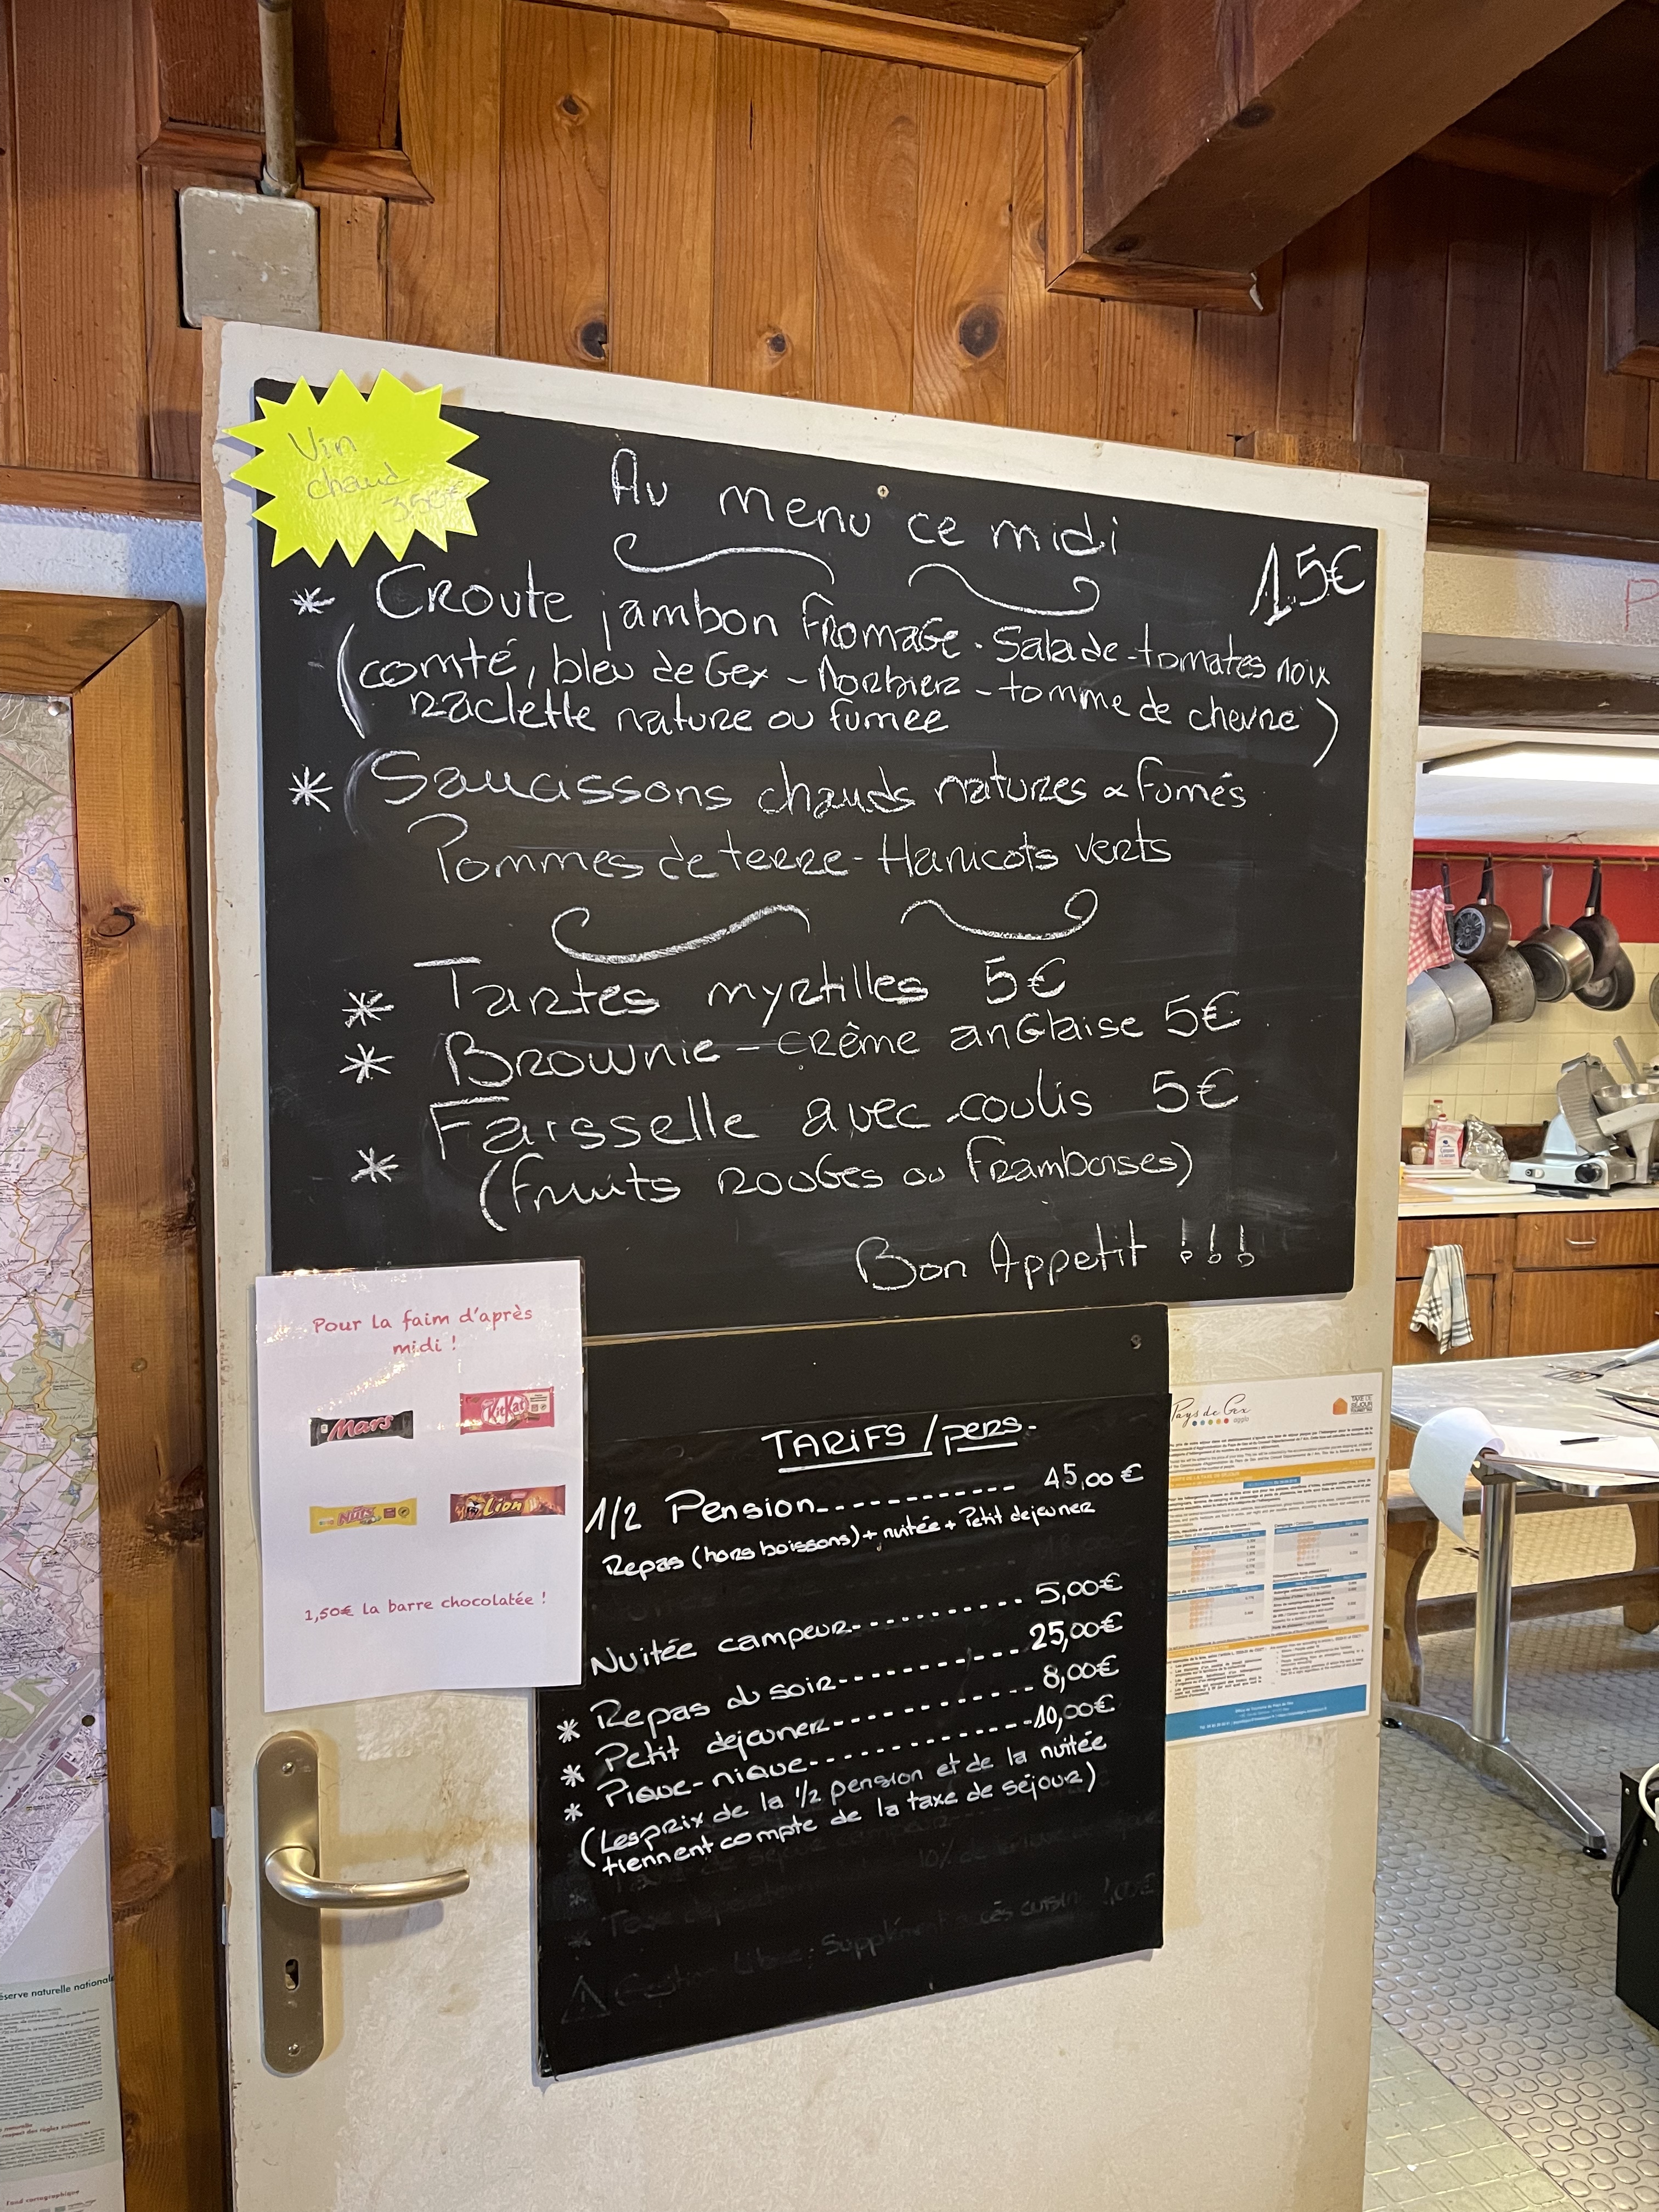 Vin
chaud
3,50€
Au menu ce midi
15€
* Croute jambon fromage - Salade - tomates noix
(comté, bleu de Gex - Morbier - tomme de chevre
raclette nature ou fumée)
* Saucissons chauds natures & fumés
Pommes de terre - Haricots verts
* Tartes myrtilles 5€
* Brownie - crème anglaise 5€
* Faisselle avec coulis 5€
(fruits rouges ou framboises)
Bon Appetit !!!
Pour la faim d'après
midi !
Mars
KitKat
Nuts
Lion
1,50€ la barre chocolatée !
TARIFS / pers.
1/2 Pension------------ 45,00€
Repas (hors boissons) + nuitée + Petit dejeuner
Nuitée campeur----------- 5,00€
* Repas du soir----------- 25,00€
* Petit dejeuner----------- 8,00€
* Pique-nique------------ 10,00€
(Les prix de la 1/2 pension et de la nuitée
tiennent compte de la taxe de séjour)
Pays de Gex
agglo
TAXE DE
SÉJOUR
éserve naturelle national
Fond cartographique